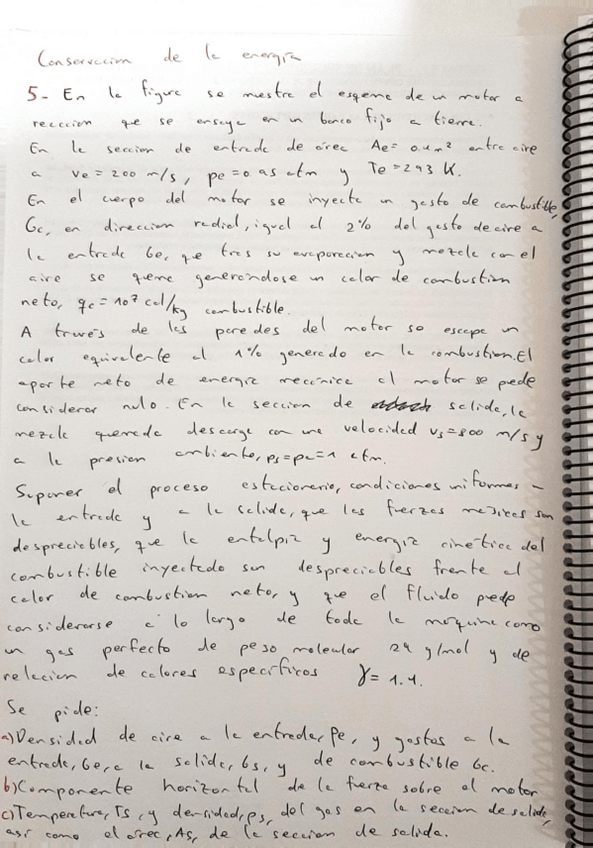 Conservacion de la energía
5- En la figura se muestra el esquema de un motor a
reaccion que se ensaya en un banco fijo a tierra.
En la seccion de entrada de area Ae= 0.4m² entra aire
a ve = 200 m/s, pe=0.95 atm y Te=293 K.
En el cuerpo del motor se inyecta un gasto de combustible,
Gc, en direccion radial, igual al 2% del gasto de aire a
la entrada Ge, que tras su evaporacion y mezcla con el
aire se quema generandose un calor de combustion
neto, qc = 10⁷ cal/kg combustible.
A través de las paredes del motor se escapa un
calor equivalente al 1% generado en la combustion. El
aporte neto de energia mecanica al motor se puede
considerar nulo. En la seccion de salida, la
mezcla quemada descarga con una velocidad vs=800 m/s y
a la presion ambiente, ps=pa=1 atm.
Suponer el proceso estacionario, condiciones uniformes -
la entrada y a la salida, que las fuerzas másicas son
despreciables, que la entalpía y energía cinética del
combustible inyectado son despreciables frente al
calor de combustion neto, y que el fluido puede
considerarse a lo largo de toda la maquina como
un gas perfecto de peso molecular 29 g/mol y de
relacion de calores específicos γ= 1.4.
Se pide:
a) Densidad de aire a la entrada, ρe, y gastos a la
entrada, Ge, a la salida, Gs, y de combustible Gc.
b) Componente horizontal de la fuerza sobre el motor
c) Temperatura, Ts, y densidad, ρs, del gas en la seccion de salida,
asi como el area, As, de la seccion de salida.